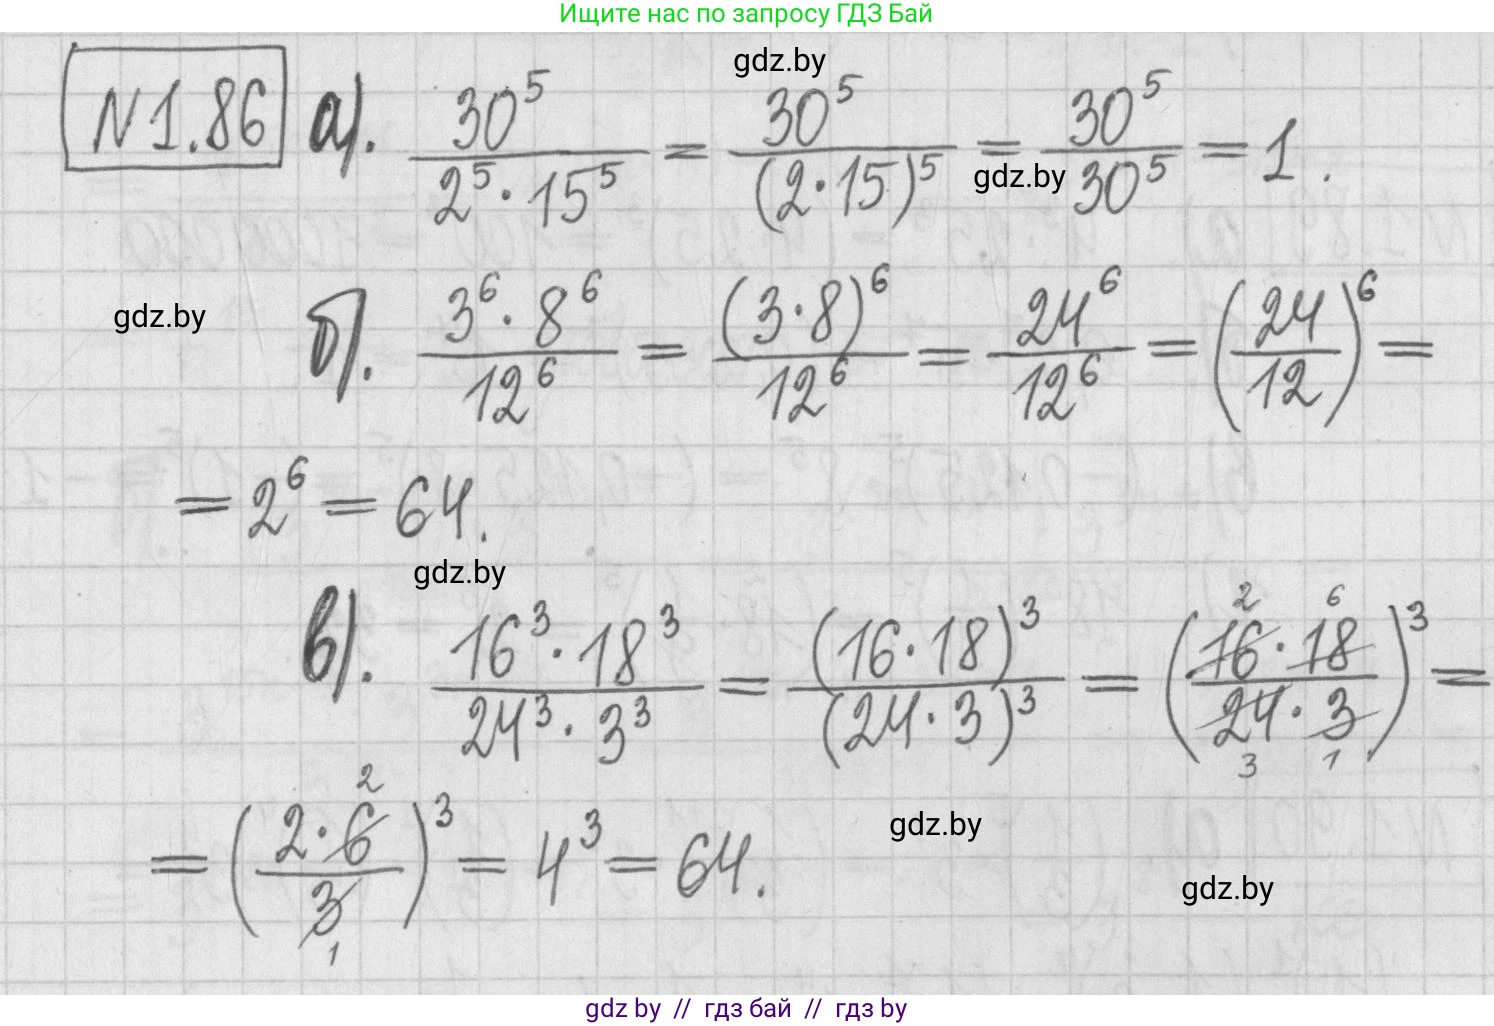 Ищите нас по запросу ГДЗ Бай
gdz.by
N 1.86 а). 30^5 / (2^5 · 15^5) = 30^5 / (2·15)^5 = 30^5 / 30^5 = 1.
gdz.by
gdz.by
б). (3^6 · 8^6) / 12^6 = (3·8)^6 / 12^6 = 24^6 / 12^6 = (24/12)^6 =
= 2^6 = 64.
gdz.by
в). (16^3 · 18^3) / (24^3 · 3^3) = (16·18)^3 / (24·3)^3 = (16·18 / 24·3)^3 =
2 6
3 1
= (2·6 / 3)^3 = 4^3 = 64.
2
1
gdz.by
gdz.by
gdz by // гдз бай // гдз by